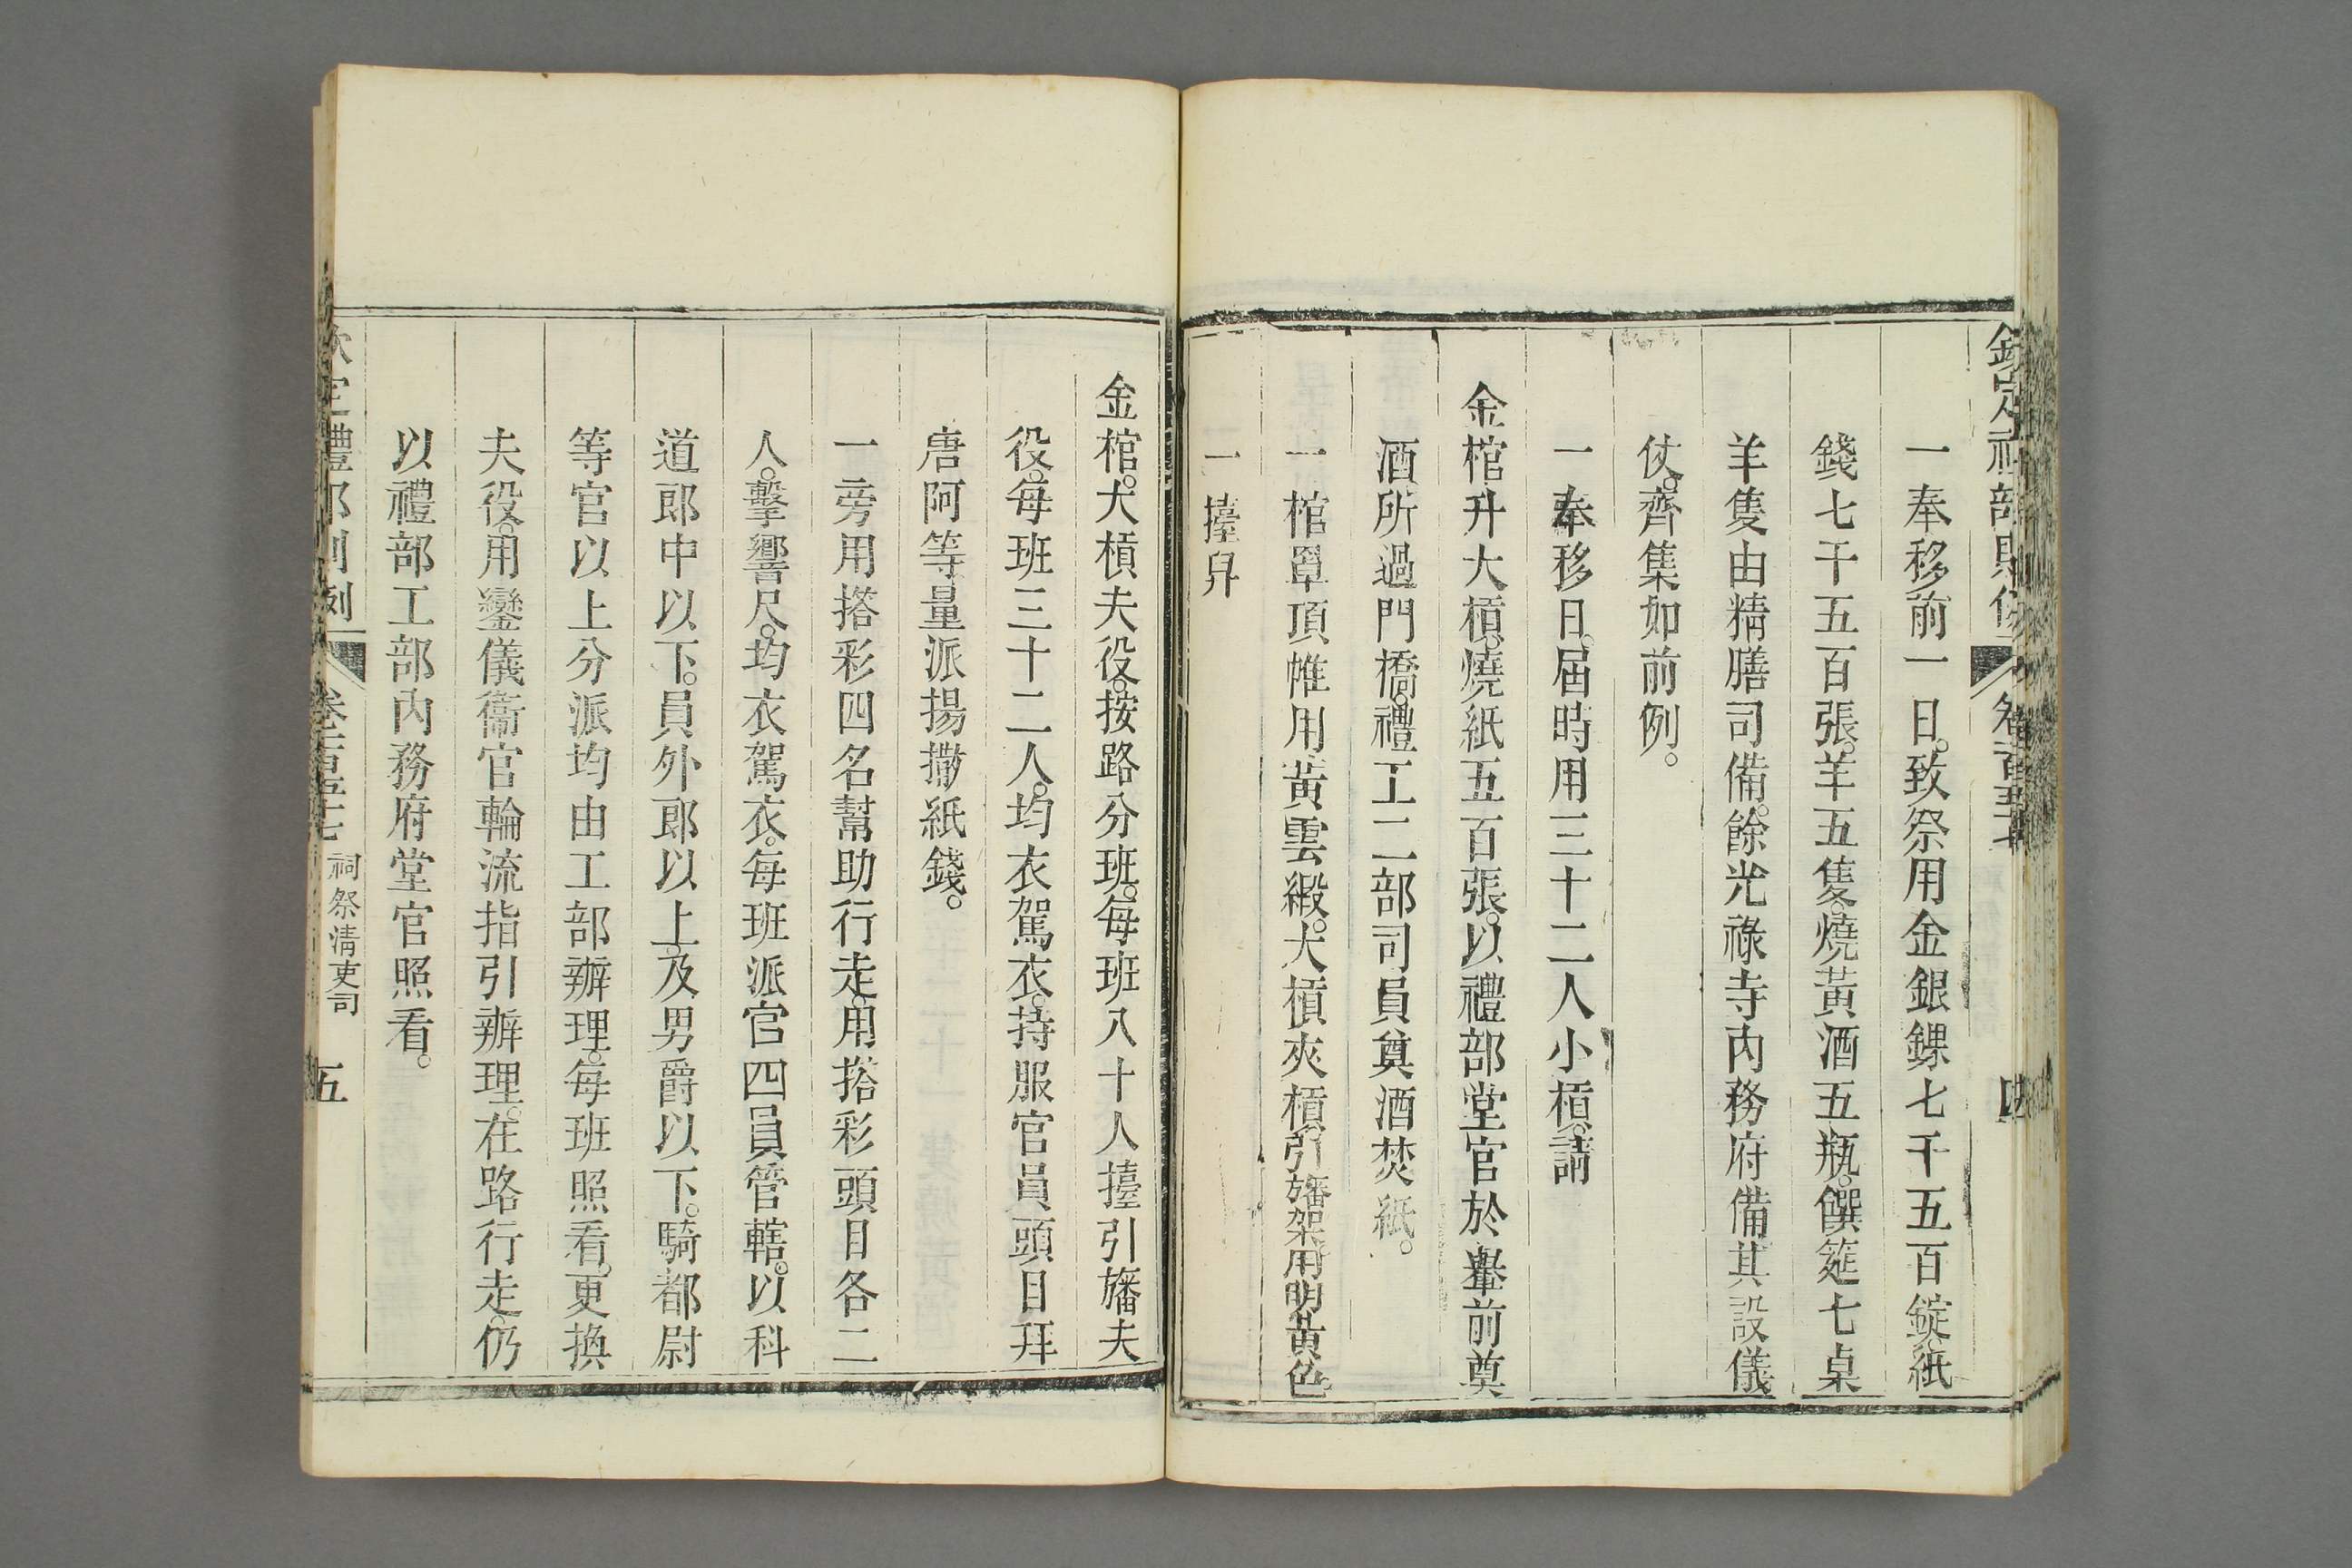 欽定禮部則例
卷一百五十七
四
一奉移前一日。致祭用金銀錁七千五百錠。紙
錢七千五百張。羊五隻。燒黃酒五瓶。饌筵七桌
羊隻由精膳司備。餘光祿寺內務府備其設儀
仗。齊集如前例。
一奉移日。屆時用三十二人小槓。請
金棺升大槓。燒紙五百張。以禮部堂官於轝前奠
酒所過門橋。禮工二部司員奠酒焚紙。
一棺罩頂帷用黃雲緞。大槓夾槓。引旛架用明黃色
一擡舁
金棺。大槓夫役。按路分班。每班八十人擡引旛夫
役。每班三十二人。均衣駕衣。持服官員頭目拜
唐阿等量派揚撒紙錢。
一旁用搭彩四名幫助行走。用搭彩頭目各二
人。擊響尺。均衣駕衣。每班派官四員管轄。以科
道郎中以下。員外郎以上。及男爵以下。騎都尉
等官以上分派均由工部辦理。每班照看。更換
夫役。用鑾儀衞官輪流指引辦理。在路行走。仍
以禮部工部內務府堂官照看。
欽定禮部則例
卷一百五十七
祠祭清吏司
五